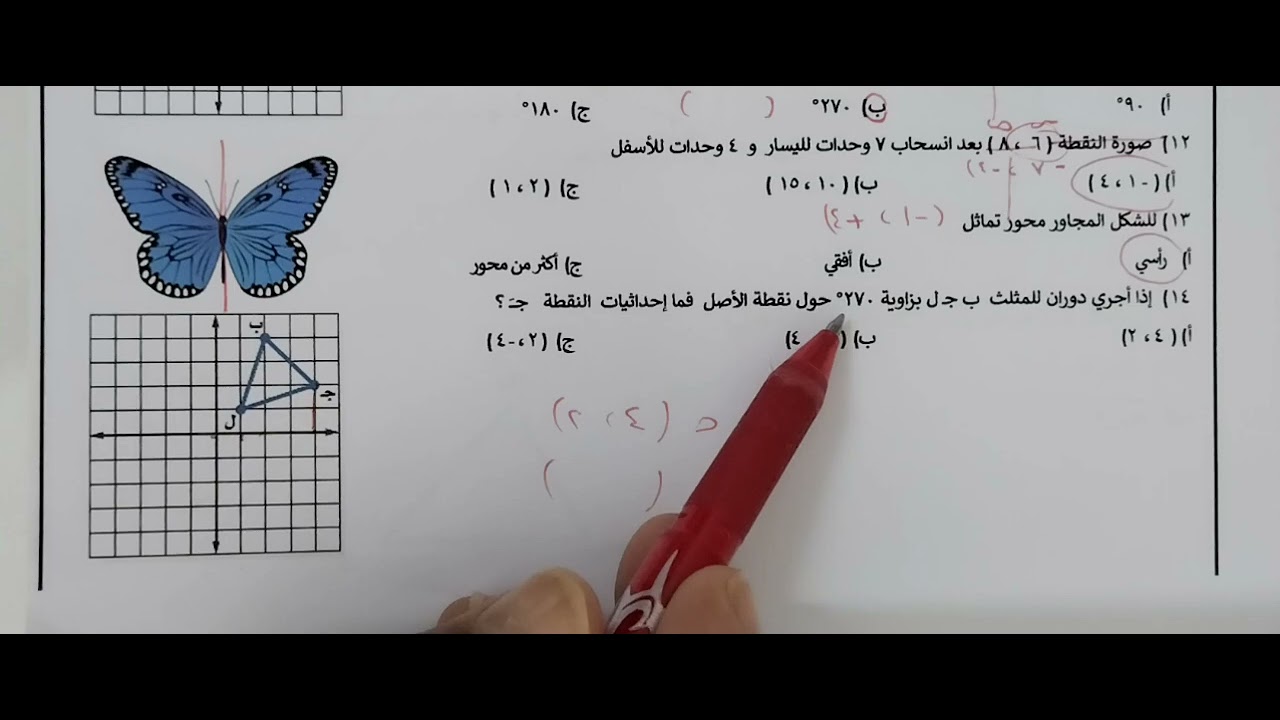 أ) ٩٠° ب) ٢٧٠° ( ) ج) ١٨٠°
س ص
١٢) صورة النقطة ( ٦ ، ٨ ) بعد انسحاب ٧ وحدات لليسار و ٤ وحدات للأسفل
أ) ( -١ ، ٤ ) ب) ( ١٠ ، ١٥ ) ج) ( ٢ ، ١ )
١٣) للشكل المجاور محور تماثل
( -١ ، +٤ )
أ) رأسي ب) أفقي ج) أكثر من محور
١٤) إذا أجري دوران للمثلث ب جـ ل بزاوية ٢٧٠° حول نقطة الأصل فما إحداثيات النقطة جـَ ؟
أ) ( ٤ ، ٢ ) ب) ( ٤ ) ج) ( ٢ ، -٤ )
ب
جـ
ل
( ٤ ، ٢ )
( )